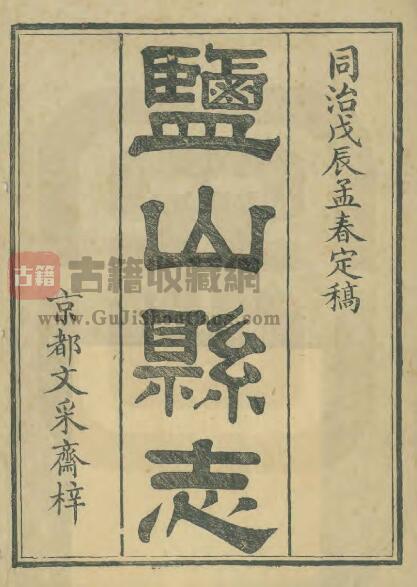 同治戊辰孟春定稿
鹽山縣志
京都文采齋梓
古籍
古籍收藏網
www.GuJiShouCang.com